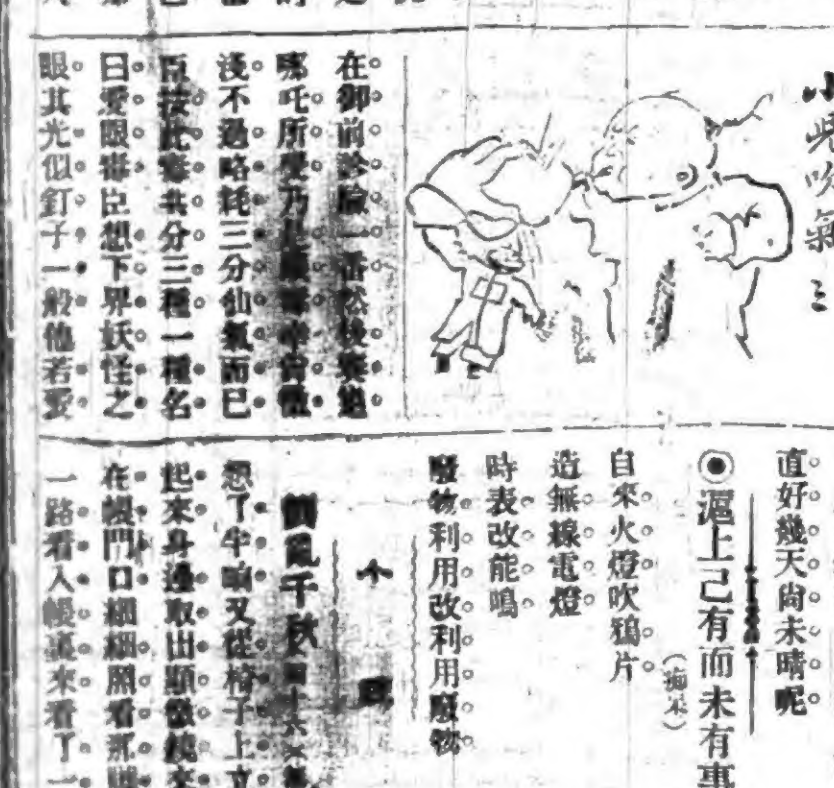 小兒吹氣
在御前診驗一番然後奏道
囑吒所受乃是
淺不過略耗三分仙氣而已
臣按此毒共分三種一種名
曰愛眼毒臣想下界妖怪之
眼其光似釘子一般他若要
直好幾天尙未晴呢
◉滬上己有而未有事
(痴呆)
自來火燈吹鴉片
造無線電燈
時表改能鳴
廢物利用改利用廢物
小
千秋 四十六
想了半晌又從椅子上立
起來身邊取出顯微鏡來
在幔門口細細照看那眼
一路看入幔裏來看了一